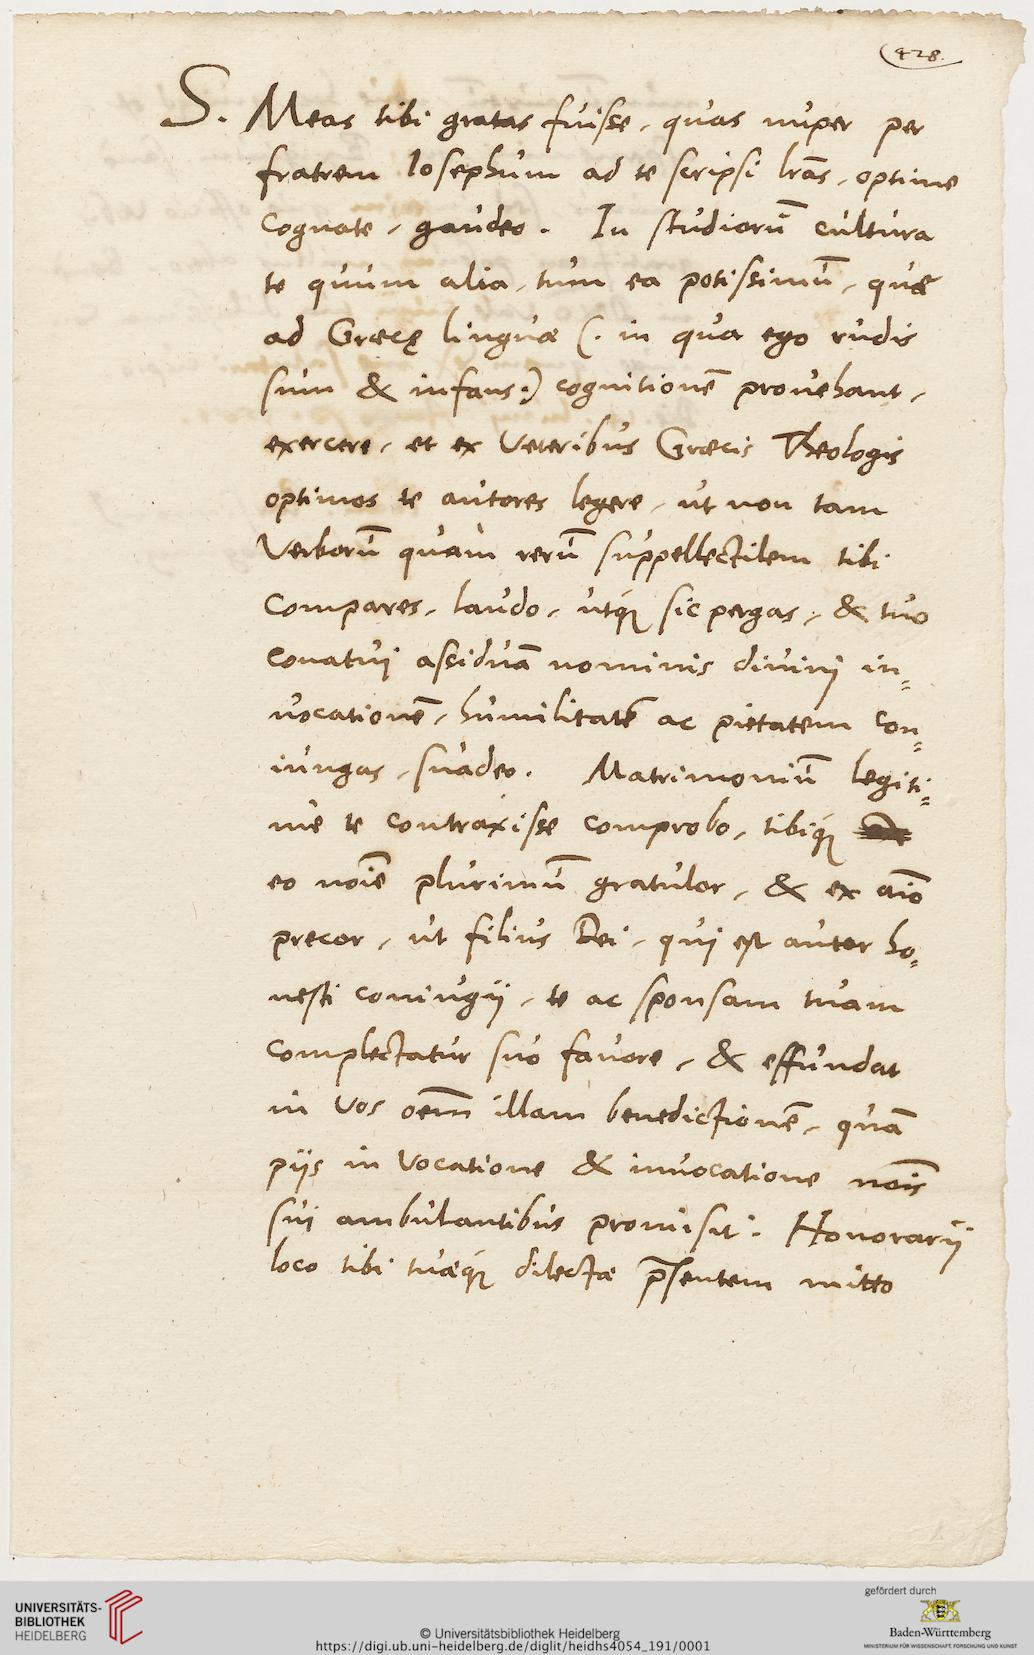 428.
S. Meas tibi gratas fuisse, quas nuper per
fratrem Iosephum ad te scripsi lr̄as, optime
cognate, gaudeo. In studiorū cultura
te quum alia, tum ea potissimū, quæ
ad Græcę linguæ (: in qua ego rudis
sum & infans:) cognitionē provehant,
exercere, et ex Veteribus Græcis Theologis
optimos te autores legere, ut non tam
Verborū quàm rerū suppellectilem tibi
compares, laudo, utq́ue sic pergas, & tuo
conatui assiduā nominis divini in=
vocationē, humilitatē ac pietatem con=
iungas, suadeo. Matrimoniū legiti=
me te contraxisse comprobo, tibiq́ue
eo noīe plurimū gratulor, & ex aīo
precor, ut filius Dei, qui est autor ho=
nesti coniugij, te ac sponsam tuam
complectatur suo favore, & effundat
in vos oēm illam benedictionē, quā
pijs in vocatione & invocatione nōis
sui ambulantibus promisit. Honorarij
loco tibi tuæq́ue dilectæ p̄sentem mitto
UNIVERSITÄTS-
BIBLIOTHEK
HEIDELBERG
© Universitätsbibliothek Heidelberg
https://digi.ub.uni-heidelberg.de/diglit/heidhs4054_191/0001
gefördert durch
Baden-Württemberg
MINISTERIUM FÜR WISSENSCHAFT, FORSCHUNG UND KUNST